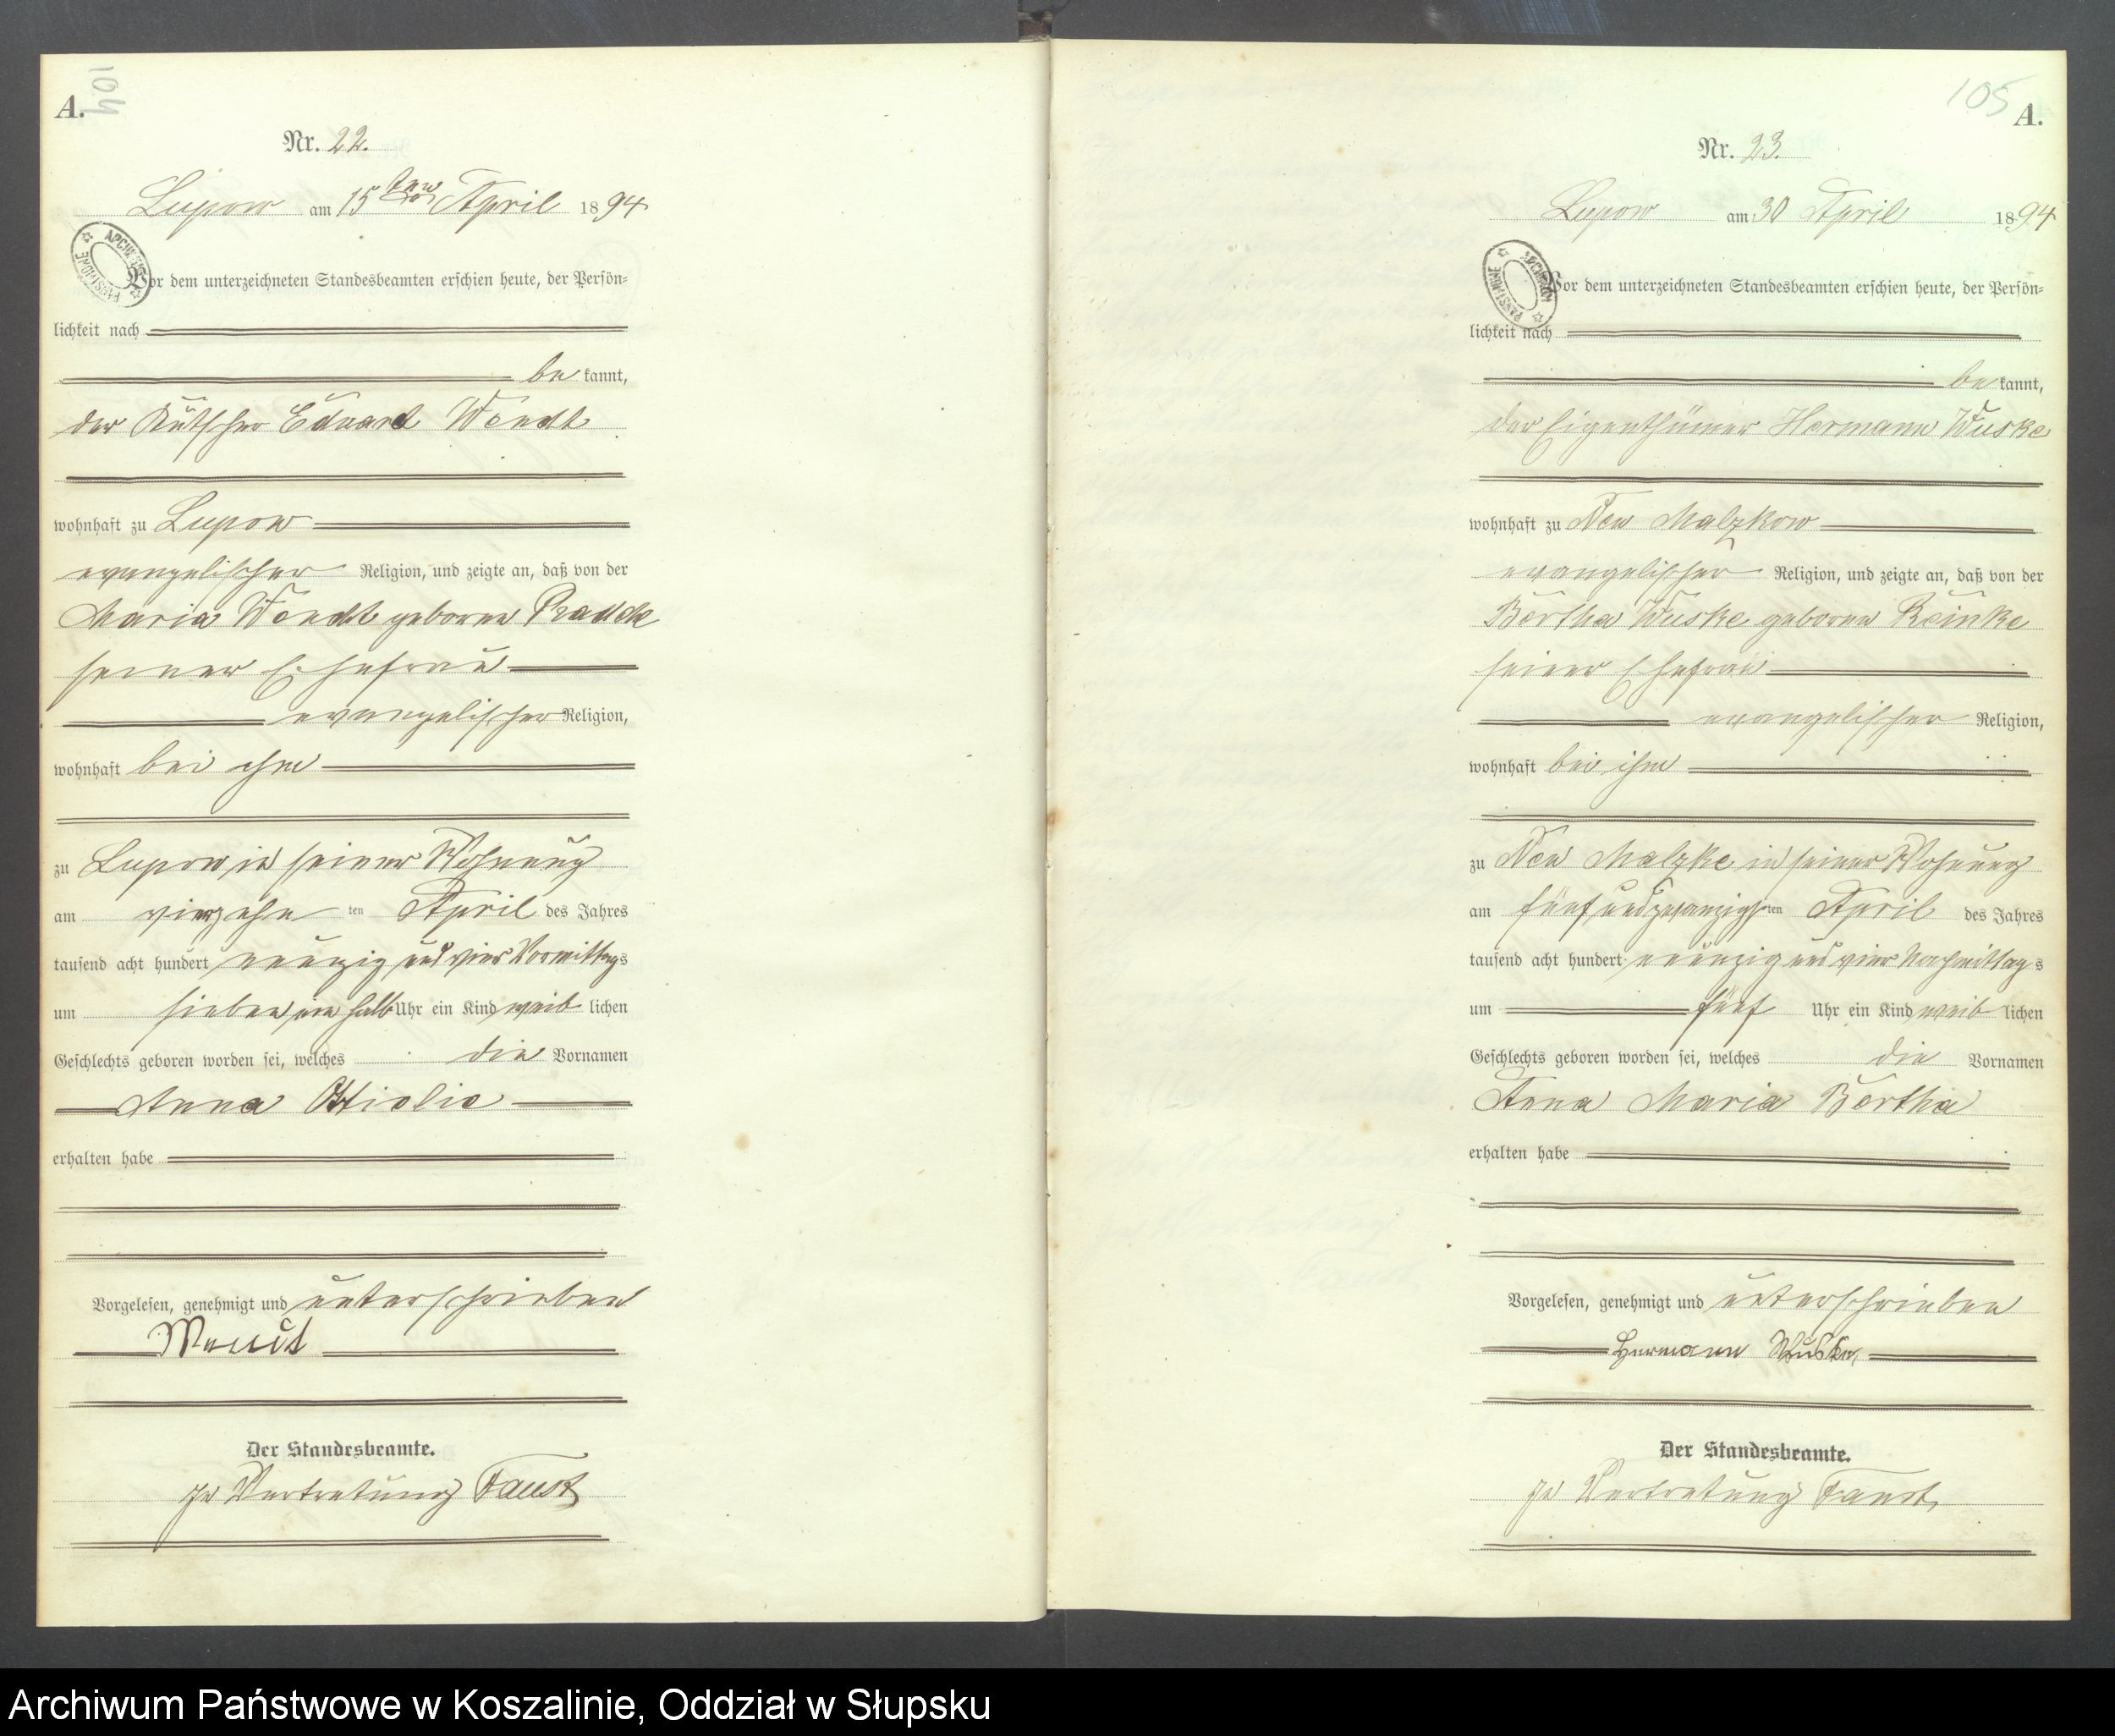 104
A.
Nr. 22.
Lupow am 15 ten April 1894
Vor dem unterzeichneten Standesbeamten erschien heute, der Persön=
lichkeit nach
be kannt,
der Kutscher Eduard Wendt
wohnhaft zu Lupow
evangelischer Religion, und zeigte an, daß von der
Maria Wendt geborne Raddde
seiner Ehefrau
evangelischer Religion,
wohnhaft bei ihm
zu Lupow in seiner Wohnung
am vierzehn ten April des Jahres
tausend acht hundert neunzig und vier Vormittags
um sieben ein halb Uhr ein Kind weib lichen
Geschlechts geboren worden sei, welches die Vornamen
Anna Ottielie
erhalten habe
Vorgelesen, genehmigt und unterschrieben
Wendt
Der Standesbeamte.
In Vertretung Faust
105
A.
Nr. 23.
Lupow am 30 April 1894
Vor dem unterzeichneten Standesbeamten erschien heute, der Persön=
lichkeit nach
be kannt,
der Eigenthümer Hermann Wuske
wohnhaft zu Neu Malzkow
evangelischer Religion, und zeigte an, daß von der
Bertha Wuske geborne Reinke
seiner Ehefrau
evangelischer Religion,
wohnhaft bei ihm
zu Neu Malzke in seiner Wohnung
am fünfundzwanzigsten April des Jahres
tausend acht hundert neunzig und vier Nachmittags
um fünf Uhr ein Kind weib lichen
Geschlechts geboren worden sei, welches die Vornamen
Anna Maria Bertha
erhalten habe
Vorgelesen, genehmigt und unterschrieben
Hermann Wuske
Der Standesbeamte.
In Vertretung Faust
Archiwum Państwowe w Koszalinie, Oddział w Słupsku